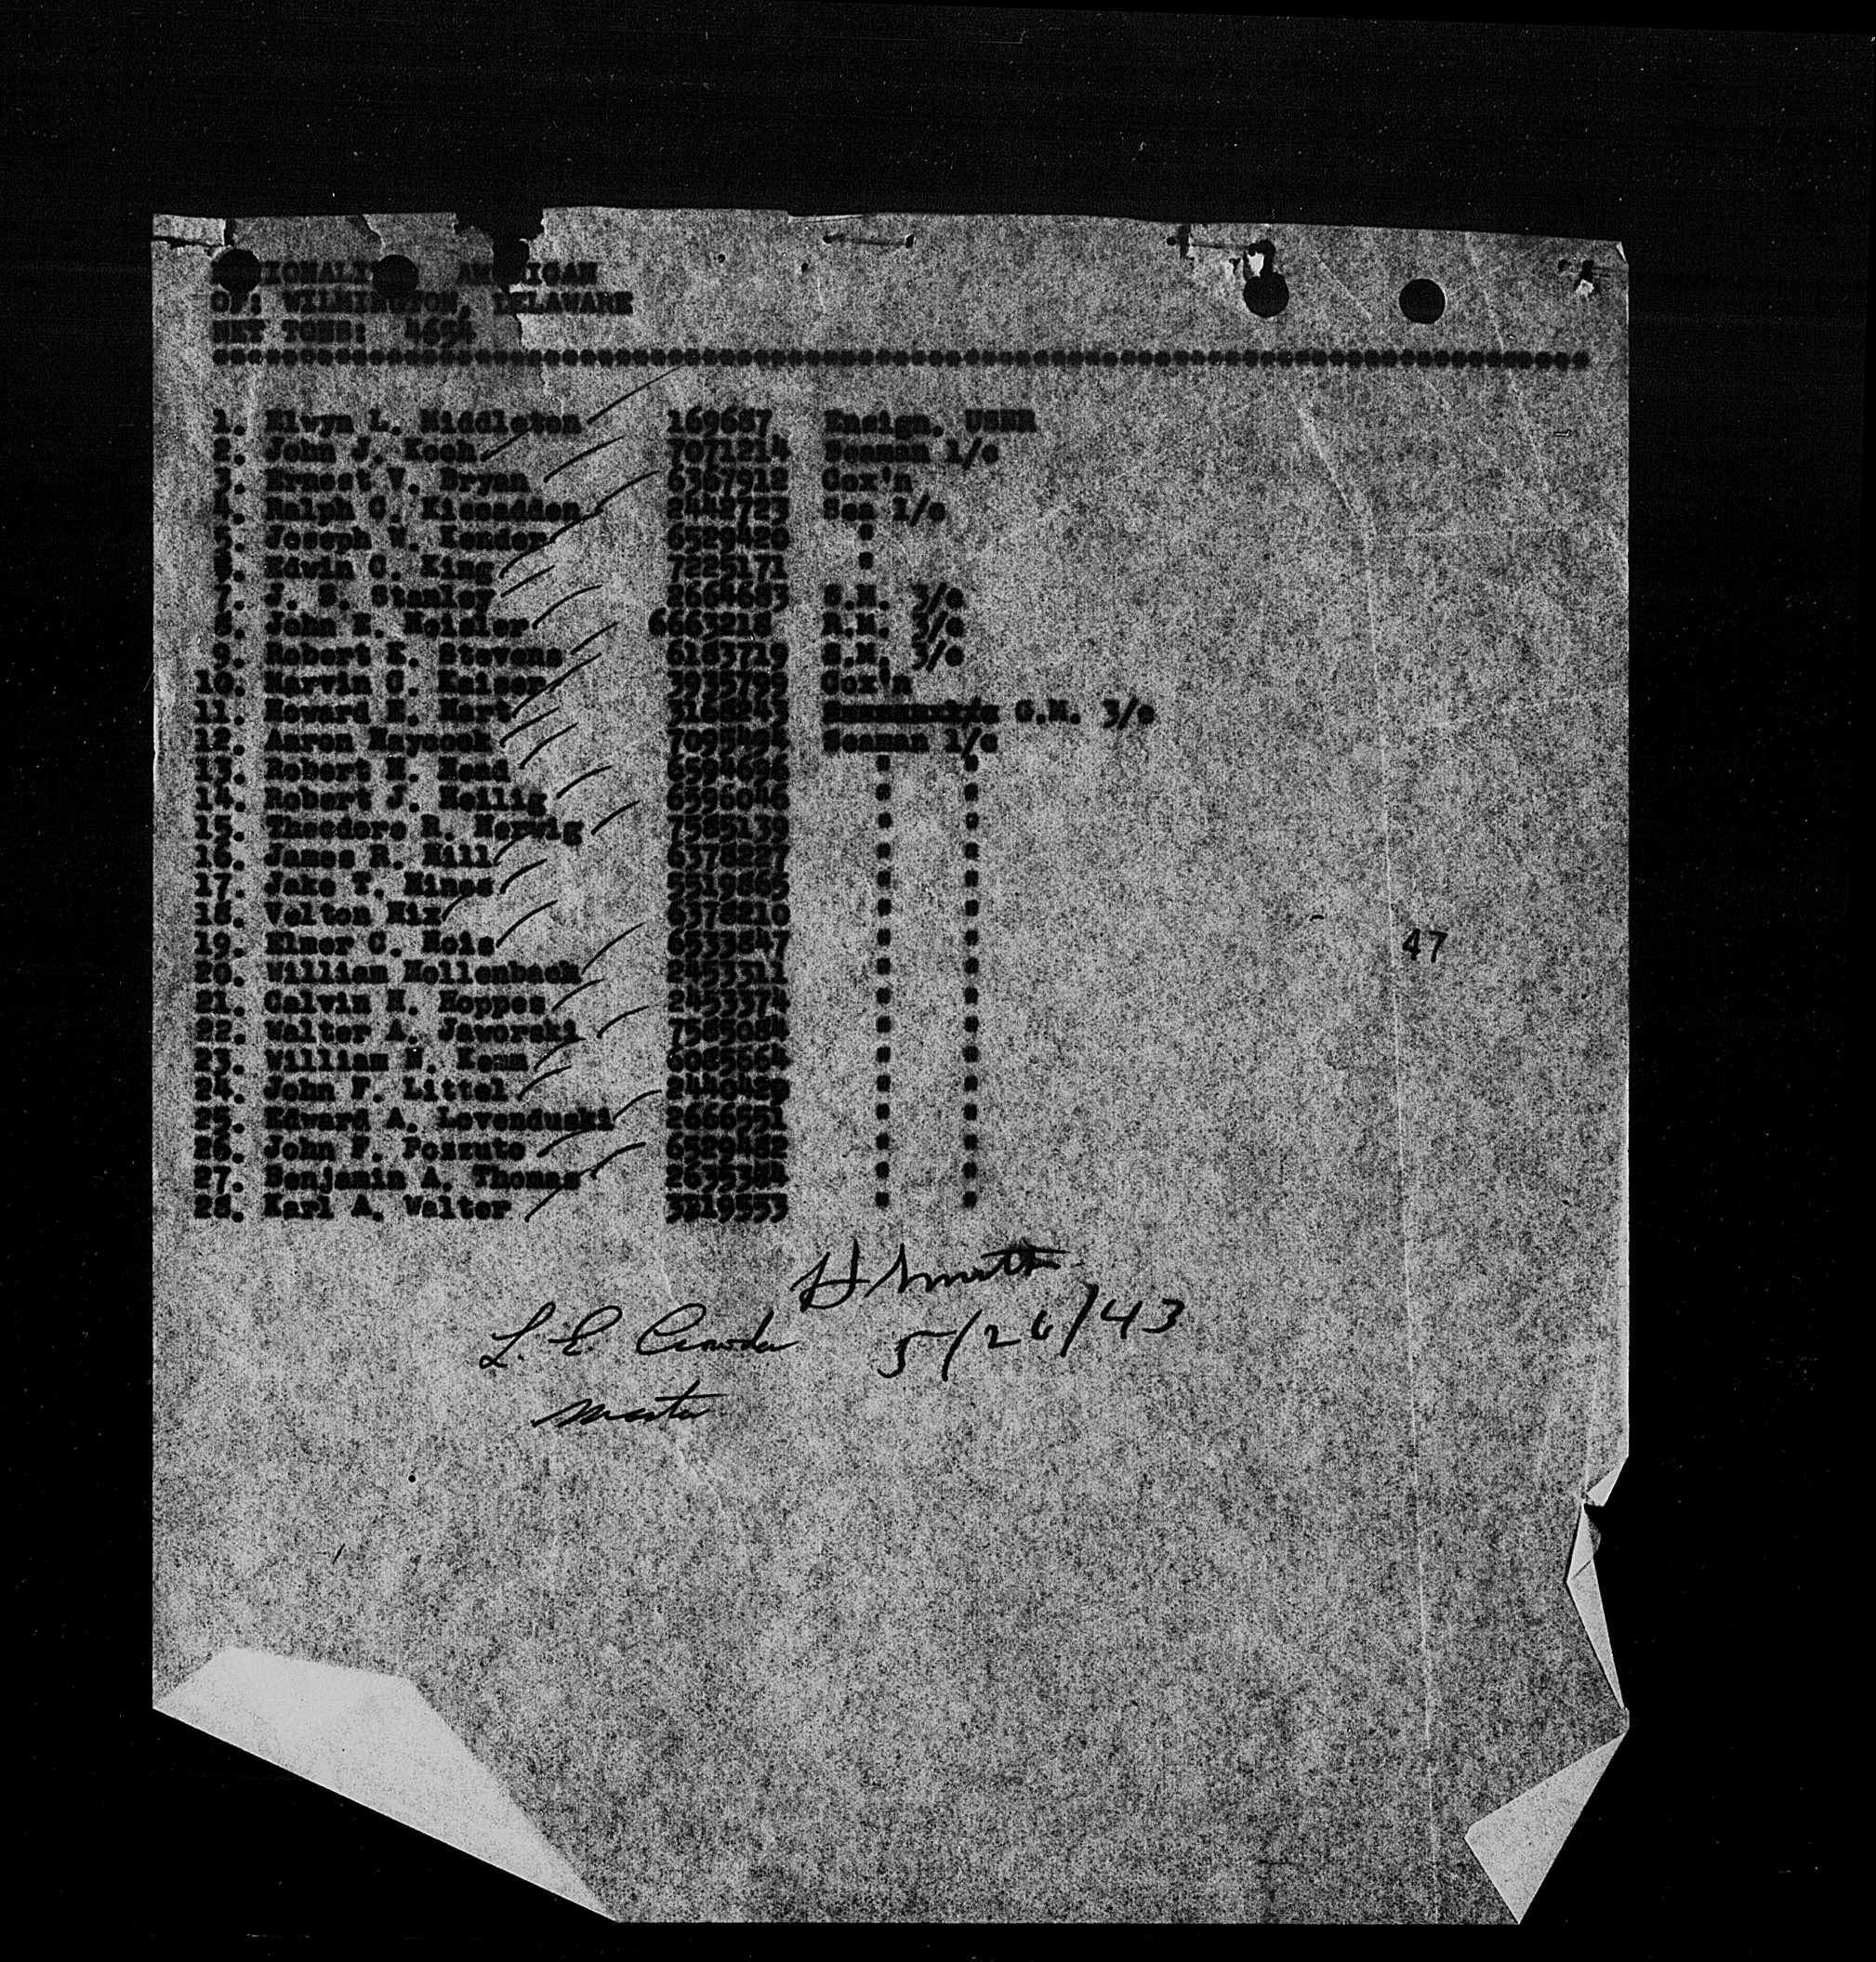 AMERICAN
OF: WILMINGTON, DELAWARE
NET TONS: 4654
1. Elwyn L. Middleton 169687 Ensign. USNR
2. John J. Koch 7071214 Seaman 1/c
3. Ernest V. Bryan 6367912 Cox'n
4. Ralph C. 2442723 Sea 1/c
5. Joseph W. Kender 6529420 "
6. Edwin C. King 7225171 "
7. J. S. Stanley 2664683 S.M. 3/c
8. John E. Meisler 6663218 R.M. 3/c
9. Robert K. Stevens 6183719 S.M. 3/c
10. Marvin C. Kaiser 3935799 Cox'n
11. Howard E. Hart G.M. 3/c
12. Aaron Haycook 7095494 Seaman 1/c
13. Robert H. Head 6594696 " "
14. Robert J. Heilig 6596046 " "
15. Theodore R. Herwig 7585139 " "
16. James R. Hill 6378227 " "
17. Jake T. Hines 5519865 " "
18. Velton Hix 6378210 " "
19. Elmer C. Hois 6533847 " "
20. William Hollenbach 2453311 " "
21. Calvin H. Hoppes 2453374 " "
22. Walter A. Jaworski 7585084 " "
23. William N. Keam 6085664 " "
24. John F. Littel 2440429 " "
25. Edward A. Levenduski 2666551 " "
26. John F. Pozzuto 6529482 " "
27. Benjamin A. Thomas 2635384 " "
28. Karl A. Walter " "
47
H Smith
L. E. Crowder 5/26/43
Master